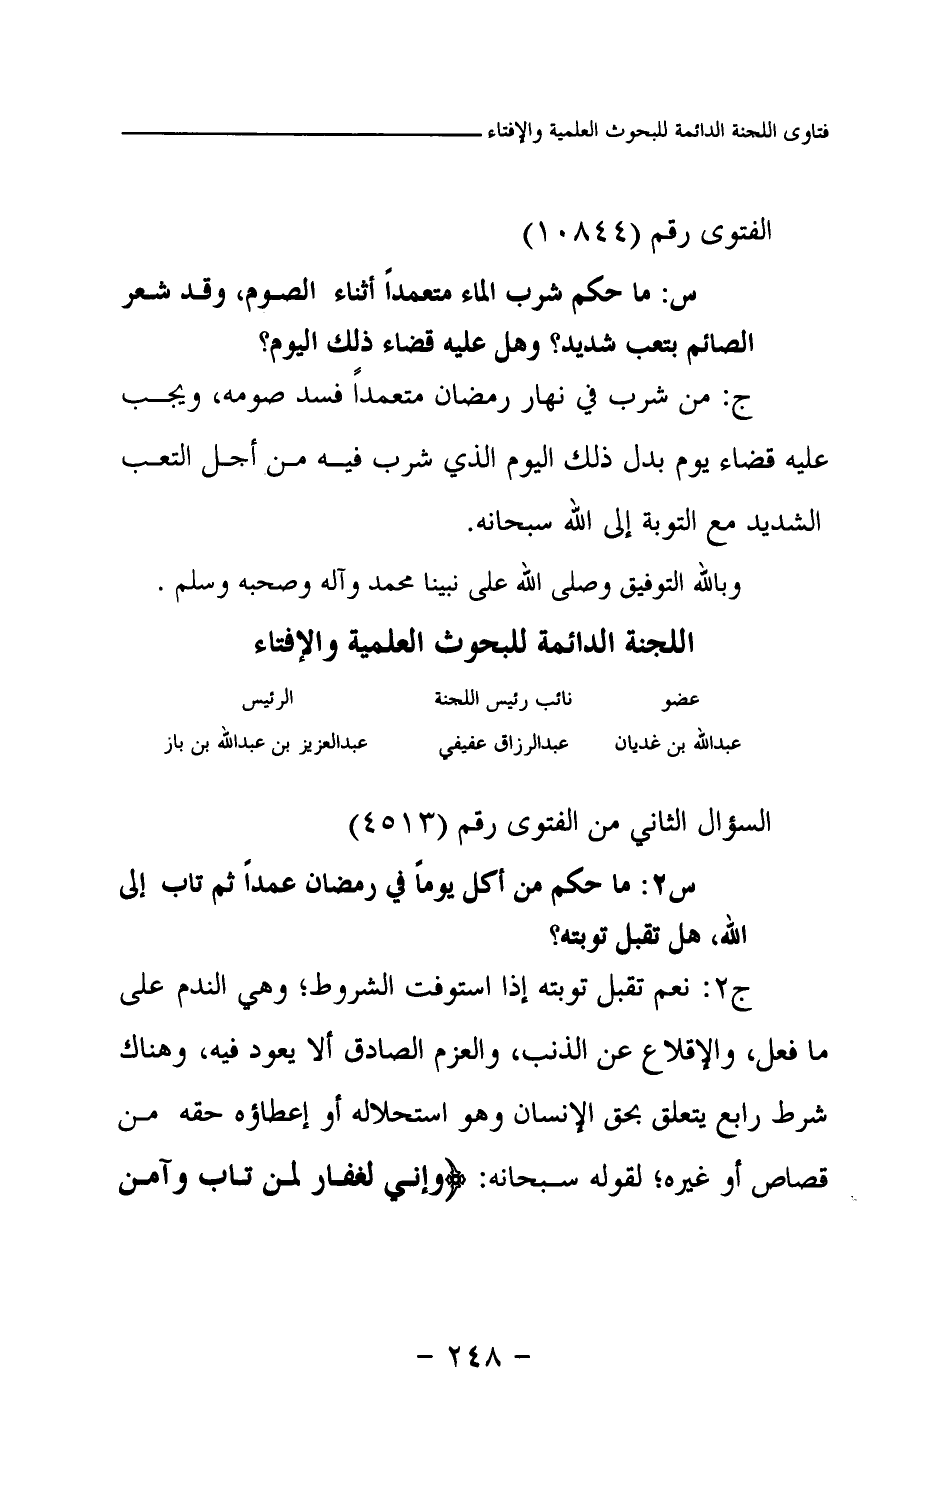 فتاوى اللجنة الدائمة للبحوث العلمية والإفتاء
الفتوى رقم (١٠٨٤٤)
س: ما حكم شرب الماء متعمداً أثناء الصوم، وقد شعر
الصائم بتعب شديد؟ وهل عليه قضاء ذلك اليوم؟
ج: من شرب في نهار رمضان متعمداً فسد صومه، ويجب
عليه قضاء يوم بدل ذلك اليوم الذي شرب فيه من أجل التعب
الشديد مع التوبة إلى الله سبحانه.
وبالله التوفيق وصلى الله على نبينا محمد وآله وصحبه وسلم .
اللجنة الدائمة للبحوث العلمية والإفتاء
عضو نائب رئيس اللجنة الرئيس
عبدالله بن غديان عبدالرزاق عفيفي عبدالعزيز بن عبدالله بن باز
السؤال الثاني من الفتوى رقم (٤٥١٣)
س٢: ما حكم من أكل يوماً في رمضان عمداً ثم تاب إلى
الله، هل تقبل توبته؟
ج٢: نعم تقبل توبته إذا استوفت الشروط؛ وهي الندم على
ما فعل، والإقلاع عن الذنب، والعزم الصادق ألا يعود فيه، وهناك
شرط رابع يتعلق بحق الإنسان وهو استحلاله أو إعطاؤه حقه من
قصاص أو غيره؛ لقوله سبحانه: ﴿وإني لغفار لمن تاب وآمن
- ٢٤٨ -